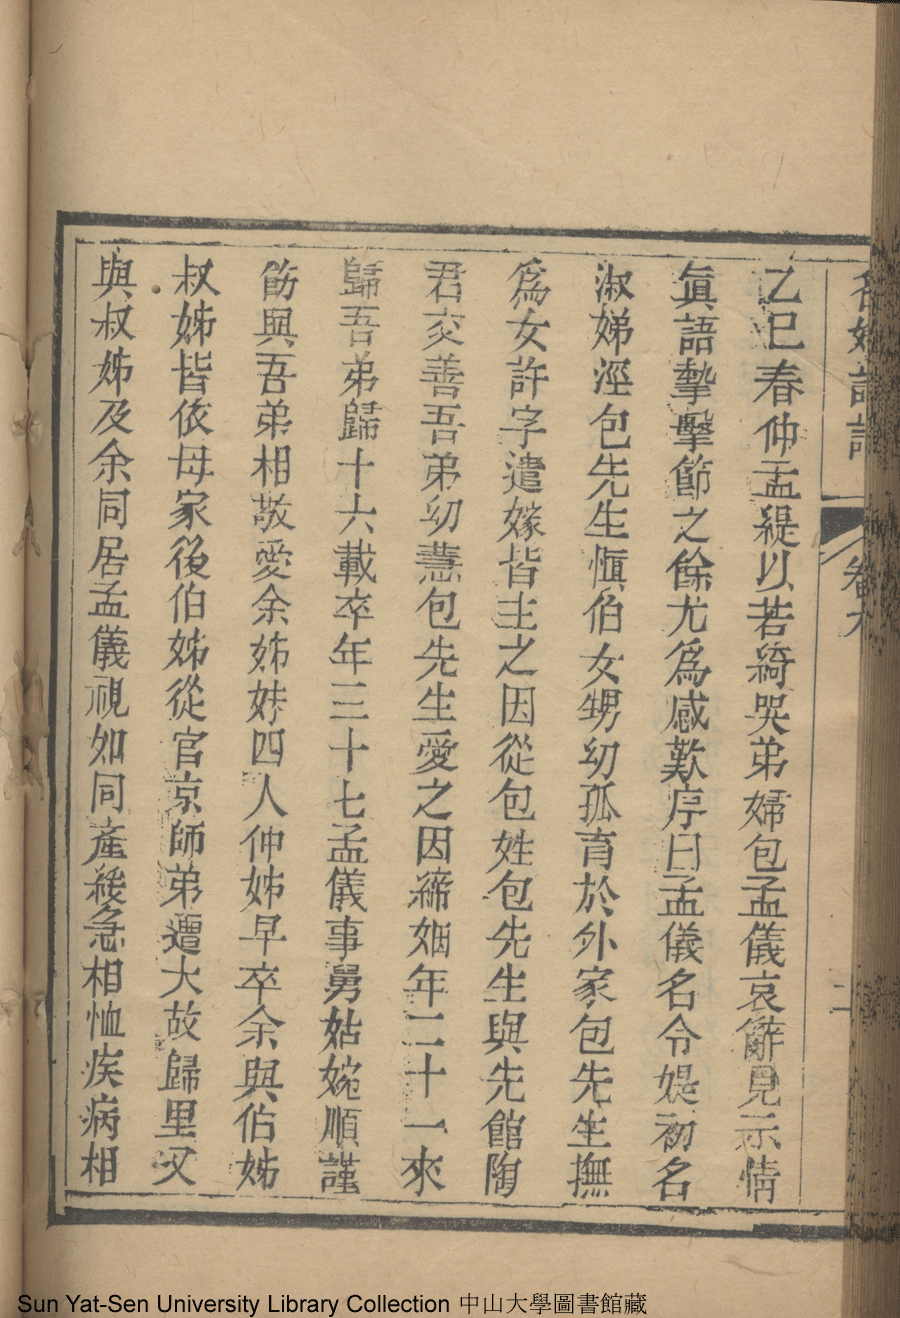 名媛詩話 卷九 二
乙巳春仲孟緹以若綺哭弟婦包孟儀哀辭見示情
眞語摯擊節之餘尤爲感歎序曰孟儀名令媞初名
淑娣涇包先生愼伯女甥幼孤育於外家包先生撫
爲女許字遣嫁皆主之因從包姓包先生與先館陶
君交善吾弟幼慧包先生愛之因締姻年二十一來
歸吾弟歸十六載卒年三十七孟儀事舅姑婉順謹
飭與吾弟相敬愛余姊妹四人仲姊早卒余與伯姊
叔姊皆依母家後伯姊從官京師弟遭大故歸里又
與叔姊及余同居孟儀視如同產緩急相恤疾病相
Sun Yat-Sen University Library Collection 中山大學圖書館藏